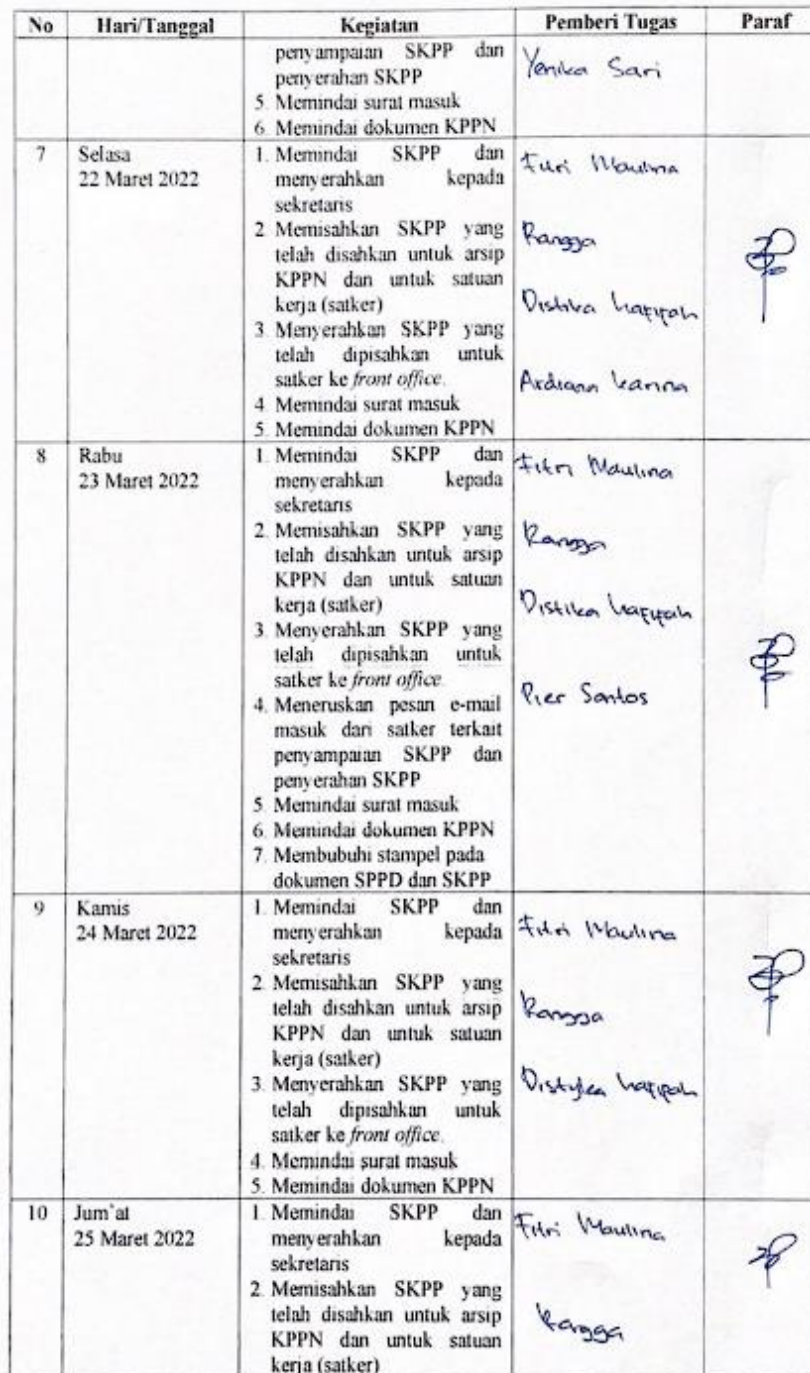 No Hari/Tanggal Kegiatan Pemberi Tugas Paraf
penyampaian SKPP dan
penyerahan SKPP
5. Memindai surat masuk
6. Memindai dokumen KPPN
Yenika Sari
7 Selasa
22 Maret 2022
1. Memindai SKPP dan
menyerahkan kepada
sekretaris
2. Memisahkan SKPP yang
telah disahkan untuk arsip
KPPN dan untuk satuan
kerja (satker)
3. Menyerahkan SKPP yang
telah dipisahkan untuk
satker ke front office.
4. Memindai surat masuk
5. Memindai dokumen KPPN
Fitri Maulina
Rangga
Distika Hafifah
Ardiana Karina
8 Rabu
23 Maret 2022
1. Memindai SKPP dan
menyerahkan kepada
sekretaris
2. Memisahkan SKPP yang
telah disahkan untuk arsip
KPPN dan untuk satuan
kerja (satker)
3. Menyerahkan SKPP yang
telah dipisahkan untuk
satker ke front office.
4. Meneruskan pesan e-mail
masuk dari satker terkait
penyampaian SKPP dan
penyerahan SKPP
5. Memindai surat masuk
6. Memindai dokumen KPPN
7. Membubuhi stampel pada
dokumen SPPD dan SKPP
Fitri Maulina
Rangga
Distika Hafifah
Pier Santos
9 Kamis
24 Maret 2022
1. Memindai SKPP dan
menyerahkan kepada
sekretaris
2. Memisahkan SKPP yang
telah disahkan untuk arsip
KPPN dan untuk satuan
kerja (satker)
3. Menyerahkan SKPP yang
telah dipisahkan untuk
satker ke front office.
4. Memindai surat masuk
5. Memindai dokumen KPPN
Fitri Maulina
Rangga
Distika Hafifah
10 Jum'at
25 Maret 2022
1. Memindai SKPP dan
menyerahkan kepada
sekretaris
2. Memisahkan SKPP yang
telah disahkan untuk arsip
KPPN dan untuk satuan
kerja (satker)
Fitri Maulina
Rangga